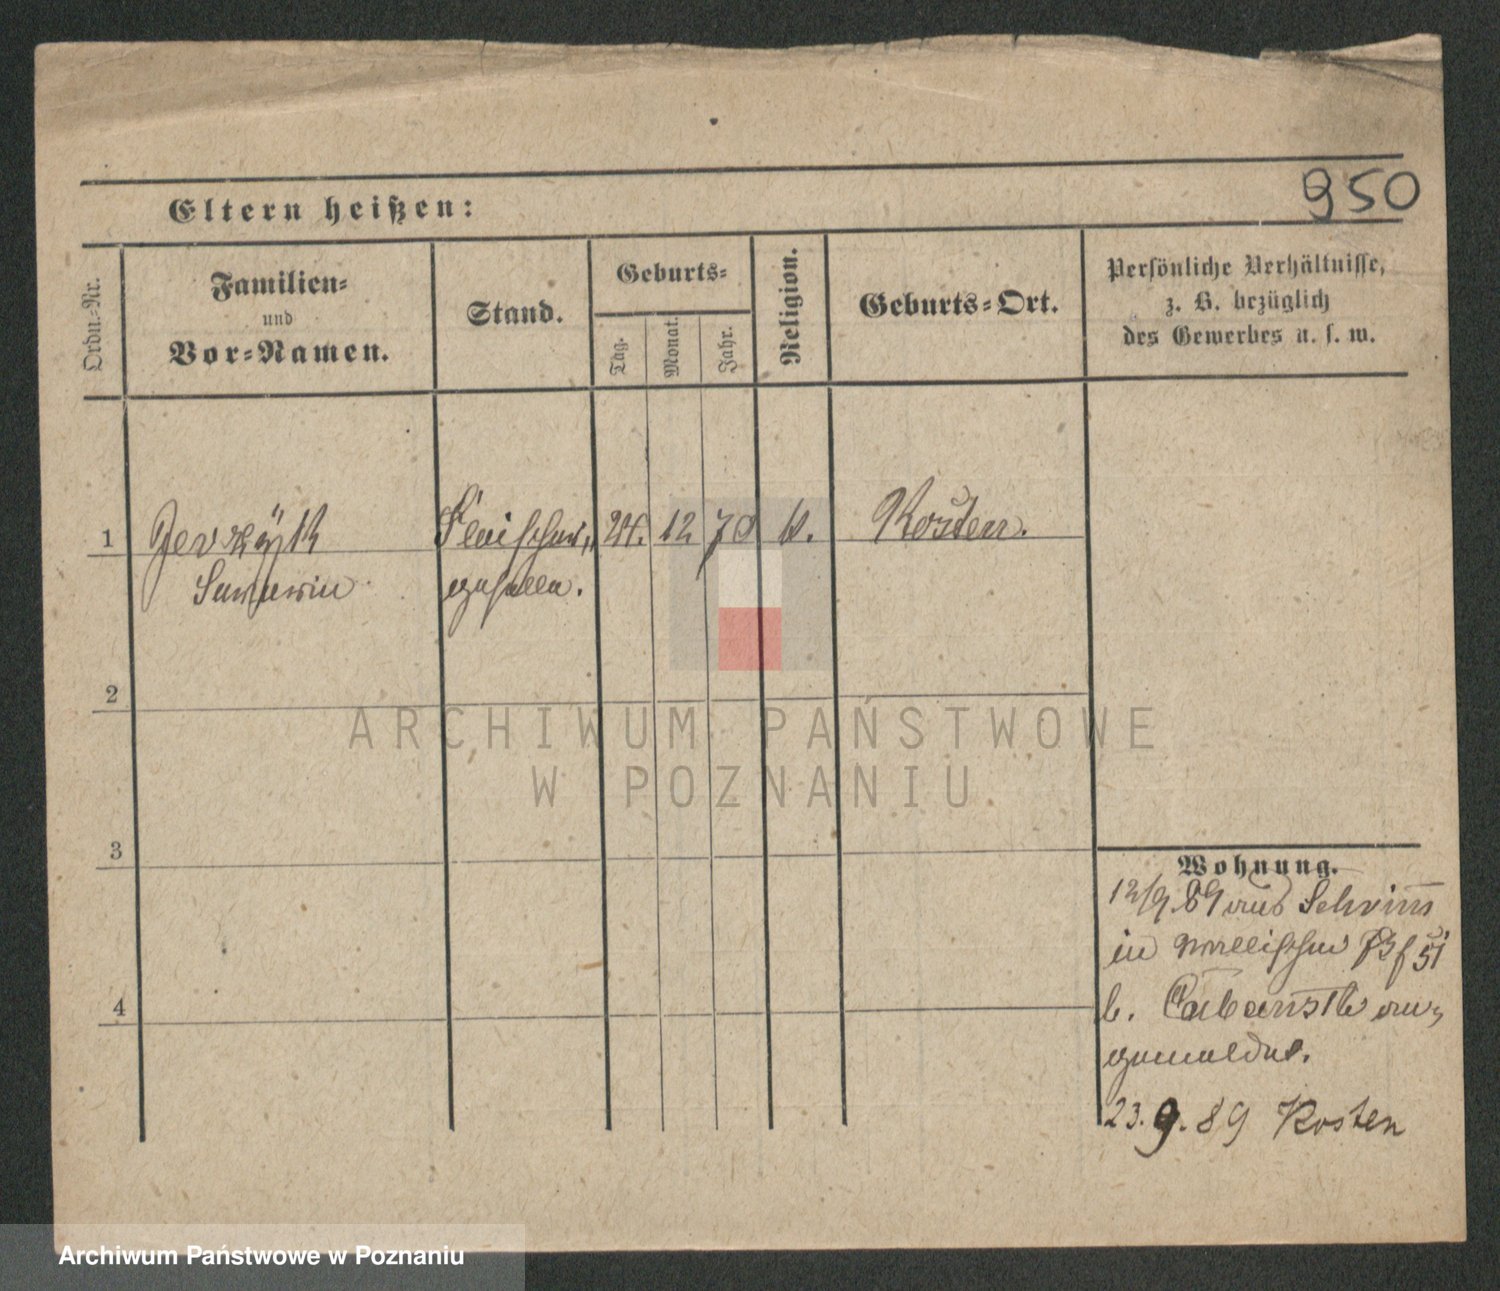 950
Eltern heißen:
Ordn.-Nr.
Familien-
und
Vor-Namen.
Stand.
Geburts-
Tag.
Monat.
Jahr.
Religion.
Geburts-Ort.
Persönliche Verhältnisse,
z. B. bezüglich
des Gewerbes u. s. w.
1
Fleischer-
24. 12 70
k.
Kosten.
geselle.
2
ARCHIWUM PAŃSTWOWE
W POZNANIU
3
Wohnung.
12/9.89 aus Schrimm
in
b. an-
gemeldet.
4
23.9.89 Kosten
Archiwum Państwowe w Poznaniu